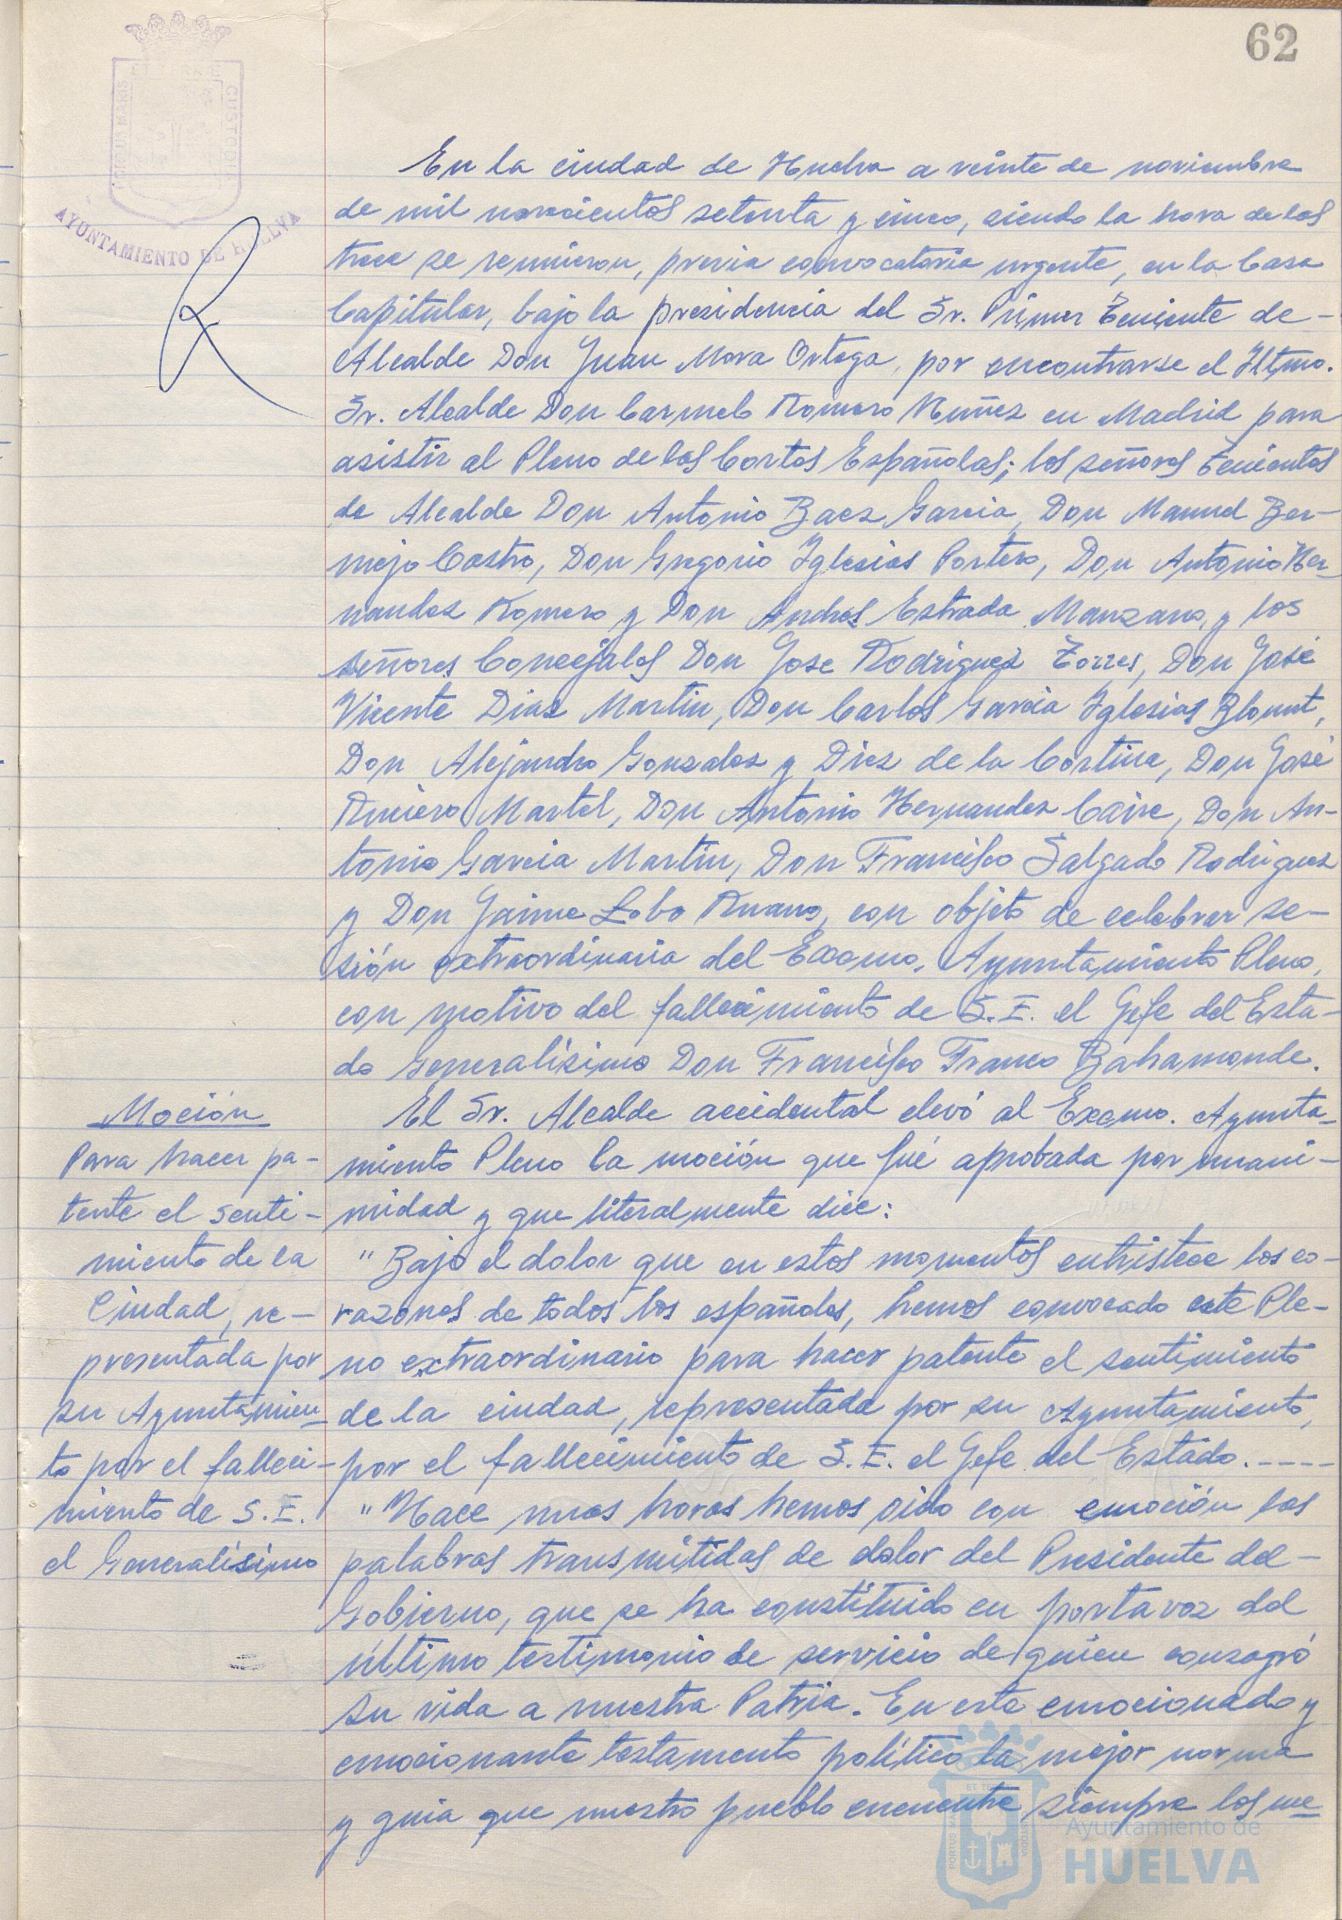 62
PORTUS MARIS
ET TERRAE
CUSTODIA
AYUNTAMIENTO DE HUELVA
En la ciudad de Huelva a veinte de noviembre
de mil novecientos setenta y cinco, siendo la hora de las
trece se reunieron, previa convocatoria urgente, en la Casa
Capitular, bajo la presidencia del Sr. Primer Teniente de-
Alcalde Don Juan Mora Ortega, por encontrarse el Iltmo.
Sr. Alcalde Don Carmelo Romero Nuñez en Madrid para
asistir al Pleno de las Cortes Españolas; los señores Tenientes
de Alcalde Don Antonio Baez Garcia, Don Manuel Ber-
mejo Castro, Don Gregorio Iglesias Portero, Don Antonio Her-
nandez Romero y Don Andres Estrada Manzano, y los
señores Concejales Don Jose Rodriguez Torres, Don José
Vicente Diaz Martin, Don Carlos Garcia Iglesias Blount,
Don Alejandro Gonzalez y Diez de la Cortina, Don José
Martel, Don Antonio Hernandez Caire, Don An-
tonio Garcia Martin, Don Francisco Salgado Rodriguez
y Don Jaime Lobo Ruano, con objeto de celebrar se-
sión extraordinaria del Excmo. Ayuntamiento Pleno,
con motivo del fallecimiento de S.E. el Gefe del Esta-
do Generalísimo Don Francisco Franco Bahamonde.
El Sr. Alcalde accidental elevó al Excmo. Ayunta-
miento Pleno la moción que fué aprobada por unani-
midad y que literalmente dice:
"Bajo el dolor que en estos momentos entristece los co-
razones de todos los españoles, hemos convocado este Ple-
no extraordinario para hacer patente el sentimiento
de la ciudad, representada por su Ayuntamiento,
por el fallecimiento de S.E. el Gefe del Estado.----
"Hace unas horas hemos oido con emoción las
palabras transmitidas de dolor del Presidente del-
Gobierno, que se ha constituido en portavoz del
último testimonio de servicio de quien consagró
su vida a nuestra Patria. En este emocionado y
emocionante testamento político la mejor norma
y guia que nuestro pueblo encuentre siempre los me
Moción
Para hacer pa-
tente el senti-
miento de la
Ciudad, re-
presentada por
su Ayuntamien-
to por el falleci-
miento de S.E.
el Generalísimo
Ayuntamiento de
HUELVA